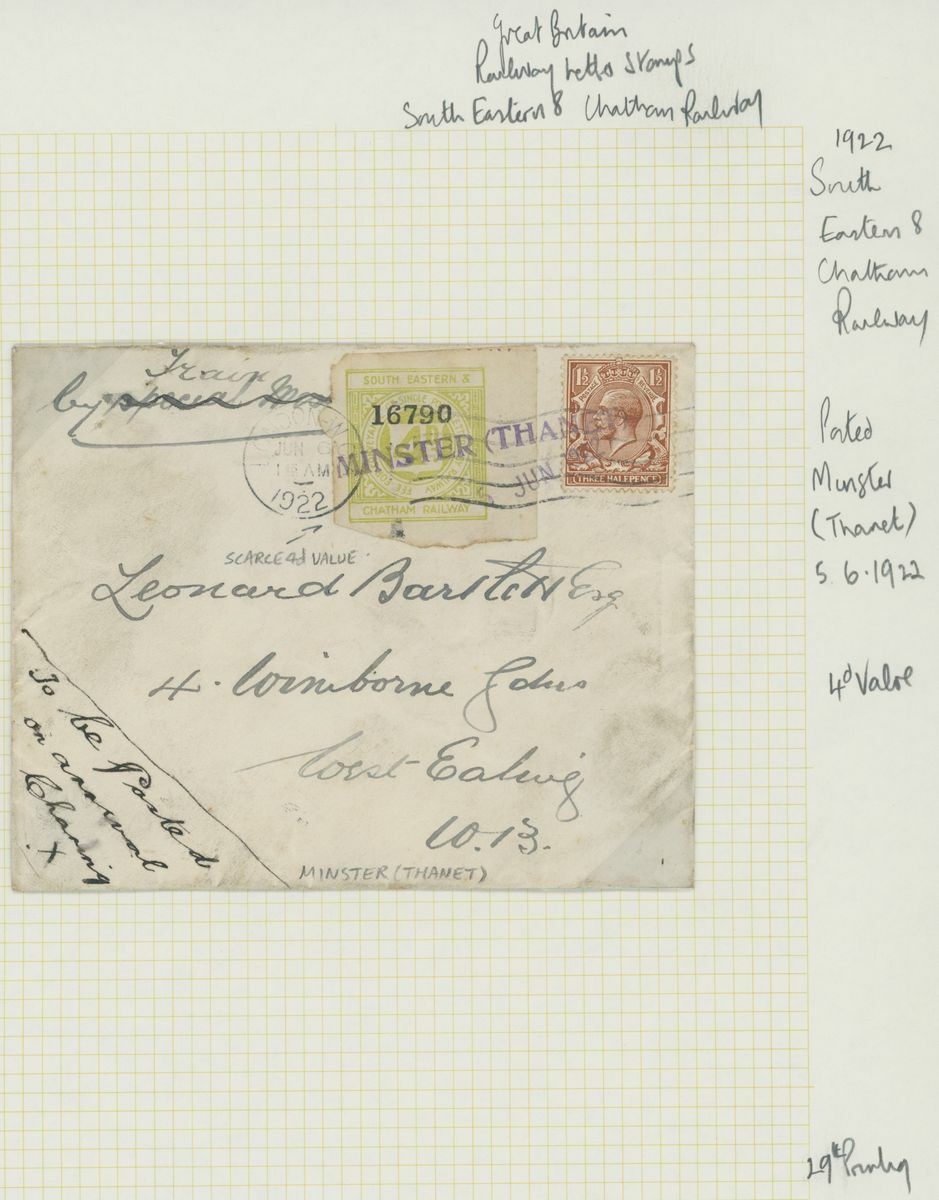 Great Britain
Railway Letter Stamps
South Eastern & Chatham Railway
1922
South
Eastern &
Chatham
Railway
Train
by special
SOUTH EASTERN &
16790
CHATHAM RAILWAY
MINSTER (THANET)
JUN
JUN 6
AM
1922
1½ 1½
POSTAGE REVENUE
THREE HALFPENCE
SCARCE 4d VALUE.
Leonard Bartlett Esq
4. Wimborne Gdns
West Ealing
W.13.
To be Posted
on arrival
Charing
X
MINSTER (THANET)
Minster
(Thanet)
5.6.1922
4d Value
29th Printing